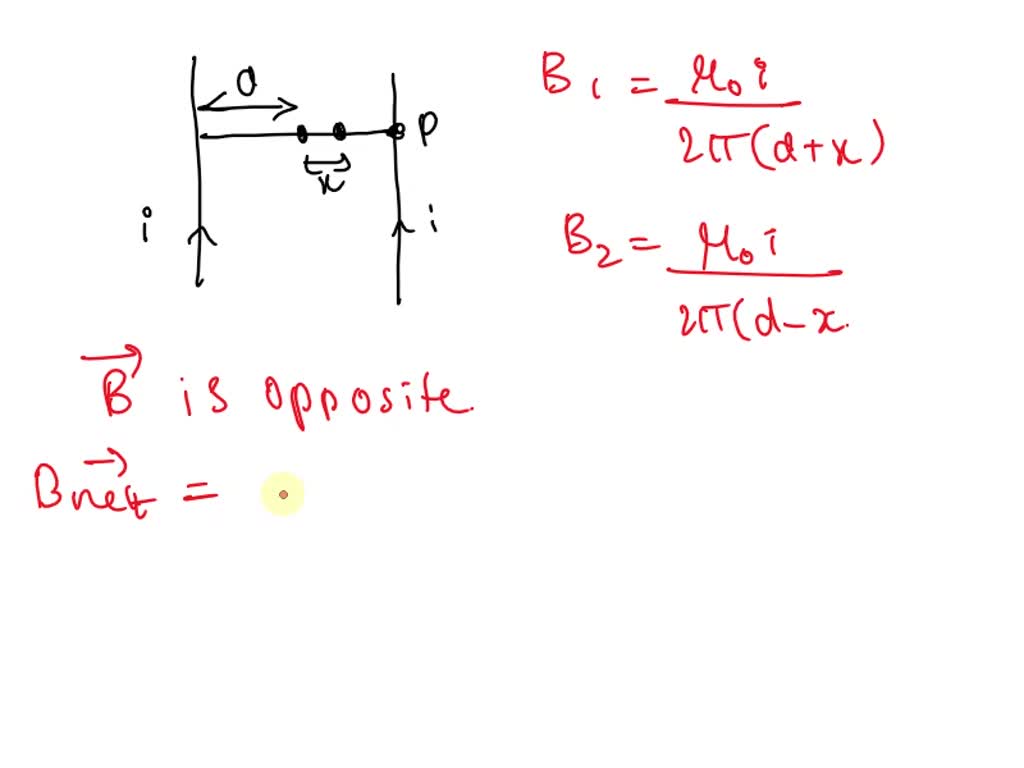 d
P
x
i
i
B₁ = μ₀i / 2π(d+x)
B₂ = μ₀i / 2π(d-x
B⃗ is opposite.
B⃗net =